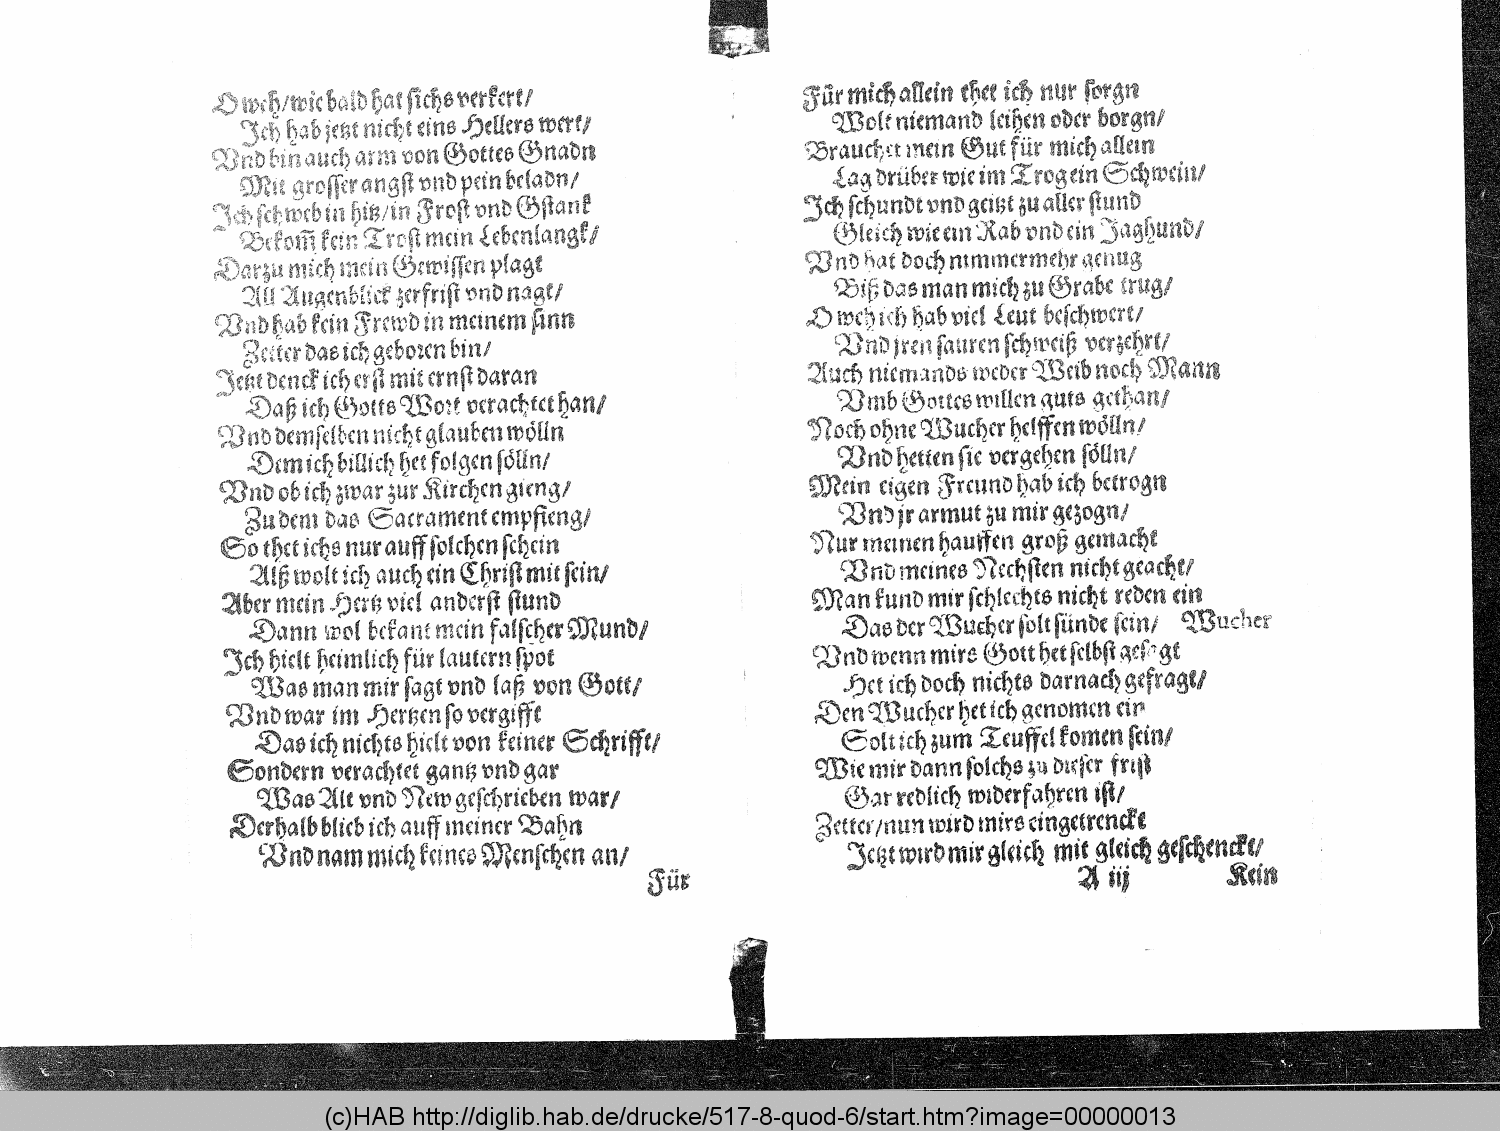 O weh/wie bald hat sichs verkert/
Ich hab jetzt nicht eins Hellers wert/
Vnd bin auch arm von Gottes Gnadn
Mit grosser angst vnd pein beladn/
Ich schweb in hitz/in Frost vnd Gstank
Bekom̃ kein Trost mein Lebenlangk/
Darzu mich mein Gewissen plagt
All Augenblick zerfrist vnd nagt/
Vnd hab kein Frewd in meinem sinn
Zetter das ich geboren bin/
Jetzt denck ich erst mit ernst daran
Daß ich Gotts Wort verachtet han/
Vnd demselben nicht glauben wölln
Dem ich billich het folgen sölln/
Vnd ob ich zwar zur Kirchen gieng/
Zu dem das Sacrament empfieng/
So thet ichs nur auff solchen schein
Alß wolt ich auch ein Christ mit sein/
Aber mein Hertz viel anderst stund
Dann wol bekant mein falscher Mund/
Ich hielt heimlich für lautern spot
Was man mir sagt vnd laß von Gott/
Vnd war im Hertzen so vergifft
Das ich nichts hielt von keiner Schrifft/
Sondern verachtet gantz vnd gar
Was Alt vnd New geschrieben war/
Derhalb blieb ich auff meiner Bahn
Vnd nam mich keines Menschen an/
Für
Für mich allein thet ich nur sorgn
Wolt niemand leihen oder borgn/
Brauchet mein Gut für mich allein
Lag drüber wie im Trog ein Schwein/
Ich schundt vnd geitzt zu aller stund
Gleich wie ein Rab vnd ein Jaghund/
Vnd hat doch nimmermehr genug
Biß das man mich zu Grabe trug/
O weh ich hab viel Leut beschwert/
Vnd jren sauren schweiß verzehrt/
Auch niemands weder Weib noch Mann
Vmb Gottes willen guts gethan/
Noch ohne Wucher helffen wölln/
Vnd hetten sie vergehen sölln/
Mein eigen Freund hab ich betrogn
Vnd jr armut zu mir gezogn/
Nur meinen hauffen groß gemacht
Vnd meines Nechsten nicht geacht/
Man kund mir schlechts nicht reden ein
Das der Wucher solt sünde sein/ Wucher
Vnd wenn mirs Gott het selbst gesagt
Het ich doch nichts darnach gefragt/
Den Wucher het ich genomen ein
Solt ich zum Teuffel komen sein/
Wie mir dann solchs zu dieser frist
Gar redlich widerfahren ist/
Zetter/nun wird mirs eingetrenckt
Jetzt wird mir gleich mit gleich geschenckt/
A iij Kein
(c)HAB http://diglib.hab.de/drucke/517-8-quod-6/start.htm?image=00000013